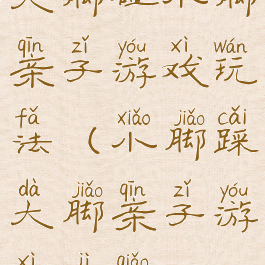 qīn zǐ yóu xì wán
亲子游戏玩
fǎ xiǎo jiǎo cǎi
法（小脚踩
dà jiǎo qīn zǐ yóu
大脚亲子游
xì jì qiǎo